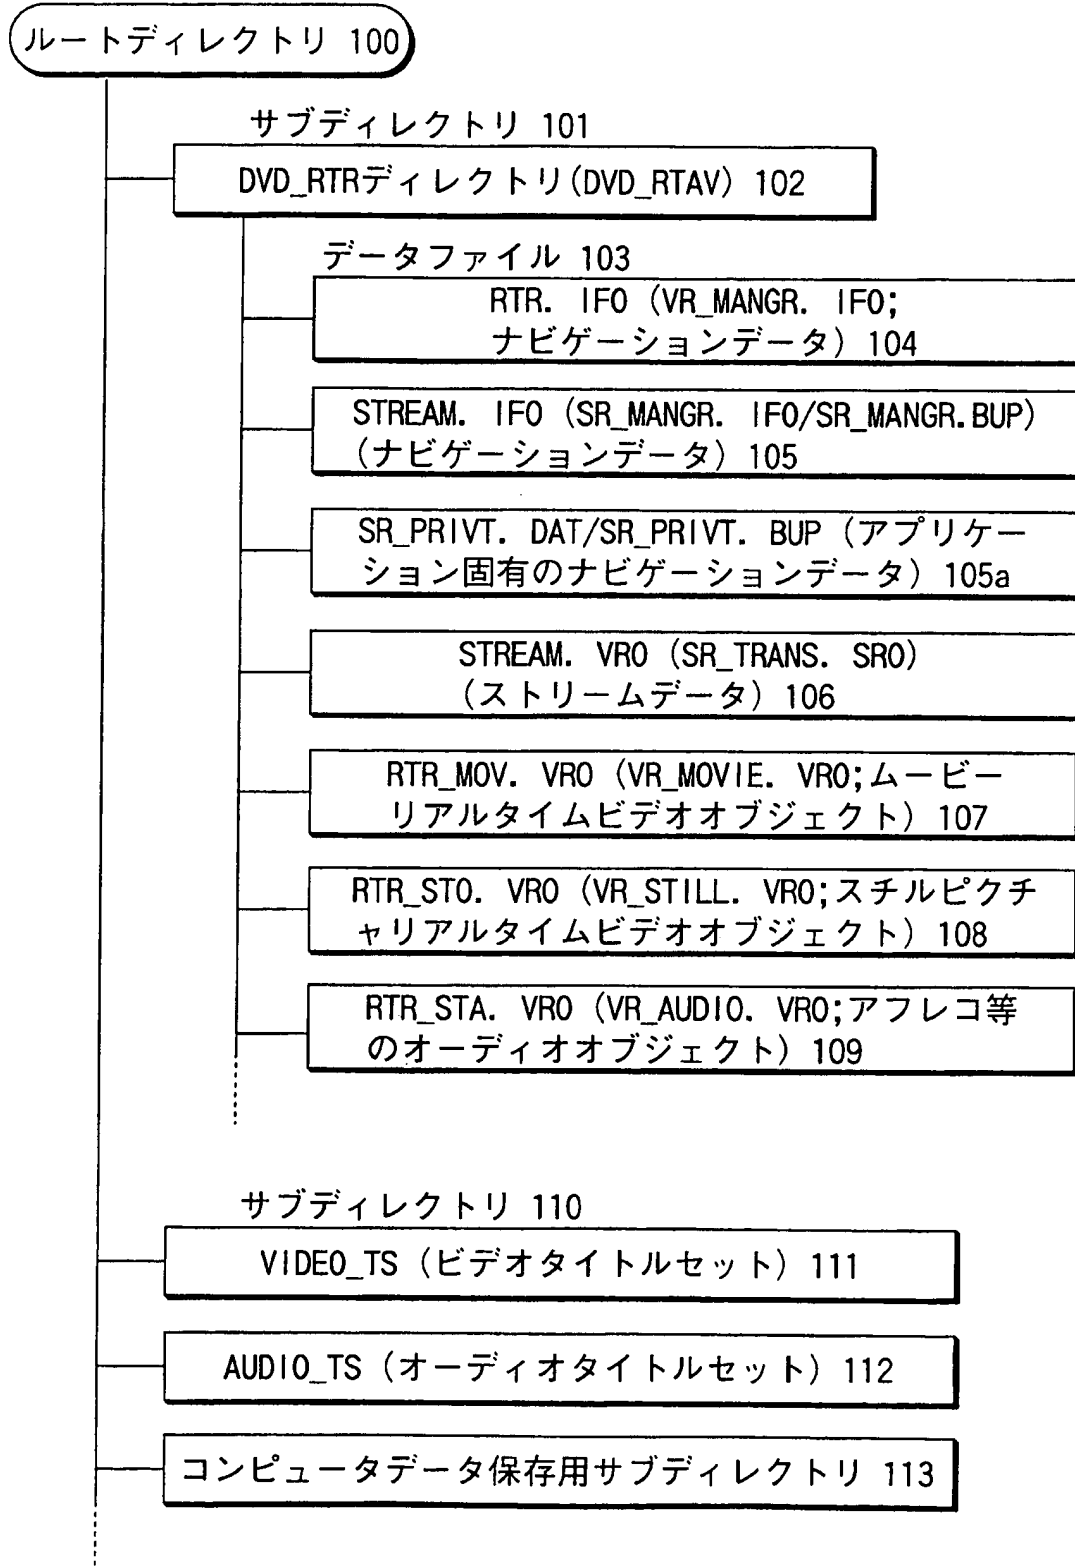 ルートディレクトリ 100
サブディレクトリ 101
DVD_RTRディレクトリ(DVD_RTAV) 102
データファイル 103
RTR. IFO (VR_MANGR. IFO;
ナビゲーションデータ) 104
STREAM. IFO (SR_MANGR. IFO/SR_MANGR.BUP)
(ナビゲーションデータ) 105
SR_PRIVT. DAT/SR_PRIVT. BUP (アプリケー
ション固有のナビゲーションデータ) 105a
STREAM. VRO (SR_TRANS. SRO)
(ストリームデータ) 106
RTR_MOV. VRO (VR_MOVIE. VRO;ムービー
リアルタイムビデオオブジェクト) 107
RTR_STO. VRO (VR_STILL. VRO;スチルピクチ
ャリアルタイムビデオオブジェクト) 108
RTR_STA. VRO (VR_AUDIO. VRO;アフレコ等
のオーディオオブジェクト) 109
サブディレクトリ 110
VIDEO_TS (ビデオタイトルセット) 111
AUDIO_TS (オーディオタイトルセット) 112
コンピュータデータ保存用サブディレクトリ 113